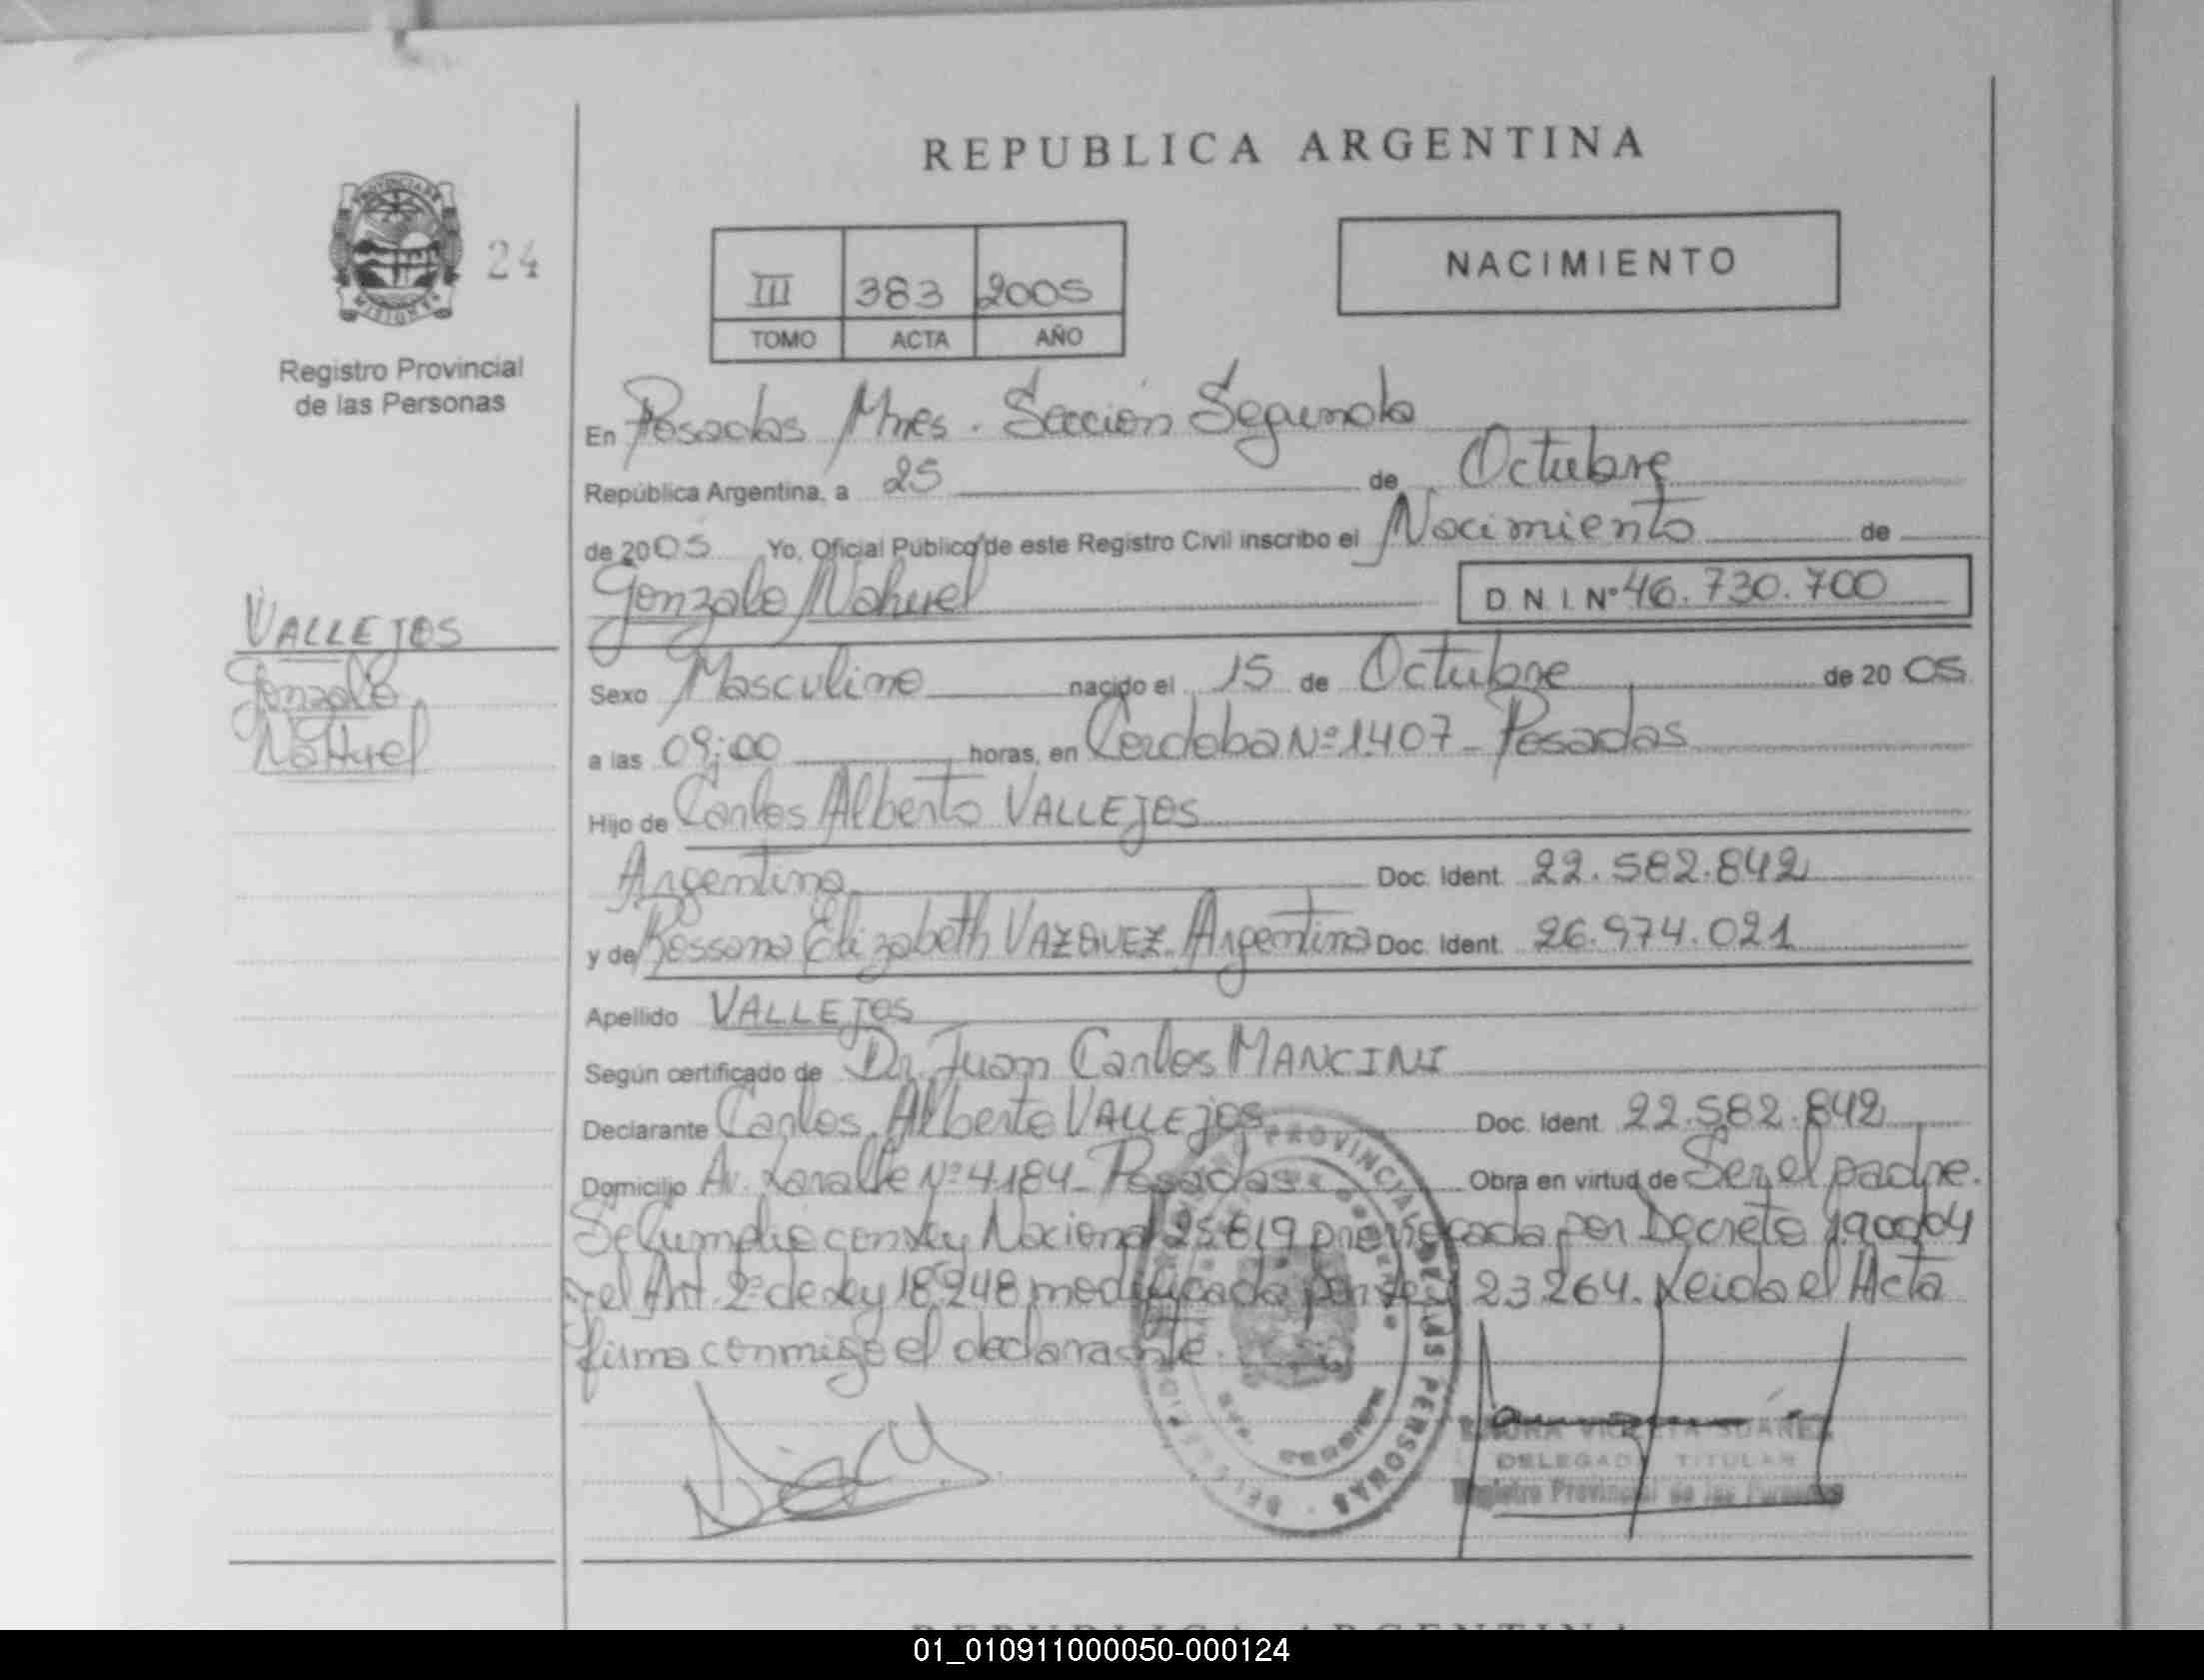 REPUBLICA ARGENTINA
24
NACIMIENTO
III 383 2005
TOMO ACTA AÑO
Registro Provincial
de las Personas
En Posadas Mnes. Sección Segunda
República Argentina, a 25 de Octubre
de 2005 Yo, Oficial Público de este Registro Civil inscribo el Nacimiento de
Gonzalo Nahuel D.N.I. Nº 46.730.700
VALLEJOS
Gonzalo
Nahuel
Sexo Masculino nacido el 15 de Octubre de 2005
a las 09:00 horas, en Cordoba Nº 1407 - Posadas
Hijo de Carlos Alberto VALLEJOS
Argentino Doc. Ident. 22.582.842
y de Rossana Elizabeth VAZQUEZ. Argentina Doc. Ident. 26.974.021
Apellido VALLEJOS
Según certificado de Dr. Juan Carlos MANCINI
Declarante Carlos Alberto VALLEJOS Doc. Ident. 22.582.842
Domicilio Av. Lavalle Nº 4184 - Posadas Obra en virtud de Ser el padre.
Se Cumplio con Ley Nacional 25.819 por Decreto 190/04
y el Art. 2º de Ley 18.248 modificada por Ley 23.264. Leida el Acta
firma conmigo el declarante.
PROVINCIAL DE LAS PERSONAS
SUAREZ
DELEGADA TITULAR
Registro Provincial de las Personas
REPUBLICA ARGENTINA
01_010911000050-000124